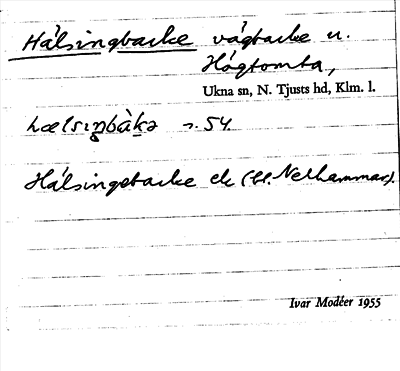 Hälsingbacke vägbacke n.
Högtomta,
Ukna sn, N. Tjusts hd, Klm. l.
hælsıŋbàkə s. 54.
Hälsingebacke ek (bl. Nelhammar).
Ivar Modéer 1955